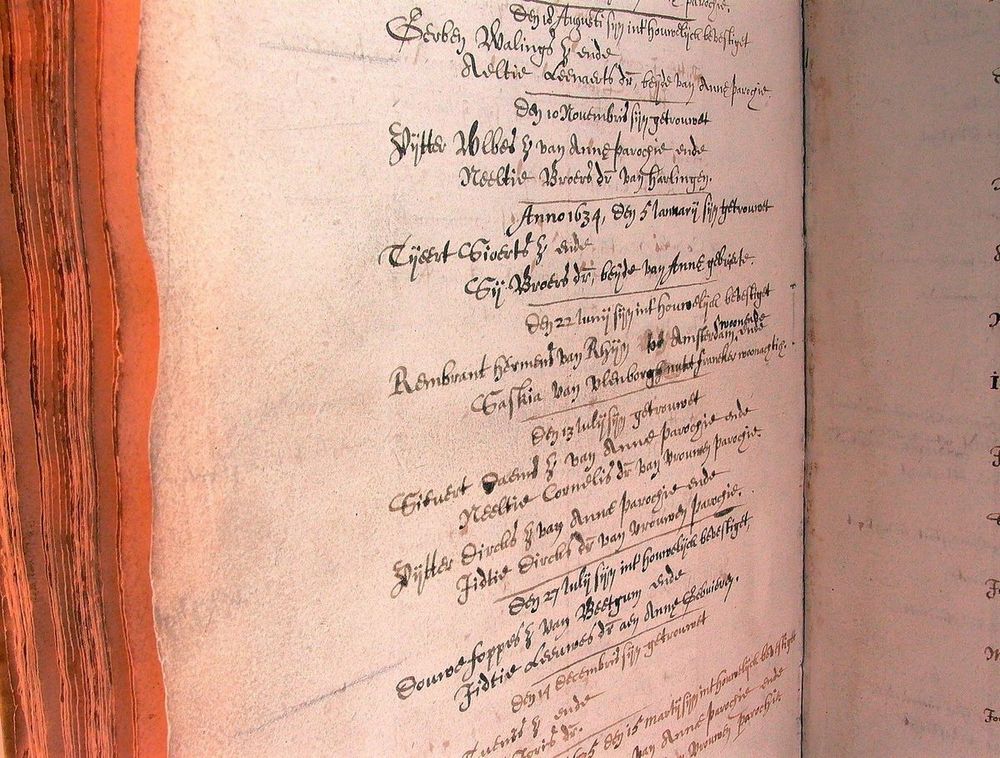 parochie.
Den 18 Augusti sijn int houwelijck bevestiget
Gerben Walings z ende
Aeltie Leenaerts dr, beyde van Anne parochie.
Den 10 Novembris sijn getrouwet
Pijtter Wlbes z van Anne parochie ende
Neeltie Broers dr van Harlingen.
Anno 1634, den 5 Ianuarij sijn getrouwet
Tjeert Sioerts z ende
Sij Broers dr, beyde van Anne gebuirte.
Den 22 Iunij sijn int houwelijck bevestiget
Rembrant Hermens van Rhijn tot Amsterdam woonende ende
Saskia van Vlenborgh nu tot Franeker woonachtig.
Den 13 Iulij sijn getrouwet
Sievert Daems z van Anne parochie ende
Neeltie Cornelis dr van Vrouwen parochie.
Pijtter Dircks z van Anne parochie ende
Jidtie Dircks dr van Vrouwen parochie.
Den 27 Iulij sijn int houwelijck bevestiget
Douwe Foppes z van Beetgum ende
Jidtie Leeuwes dr aen Anne
Den 14 Decembris sijn getrouwet
z ende
dr.
den 15 Martij sijn int houwelijck bevestiget
van Anne parochie ende
van Vrouwen parochie.